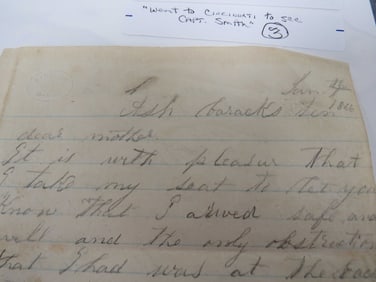 "Went to Cincinnati to see
Capt. Smith" 3
Ash baracks ten
dear mother
It is with pleasur that
I take my seat to let you
know that I arived safe and
well and the only obstruction
that I had was at the